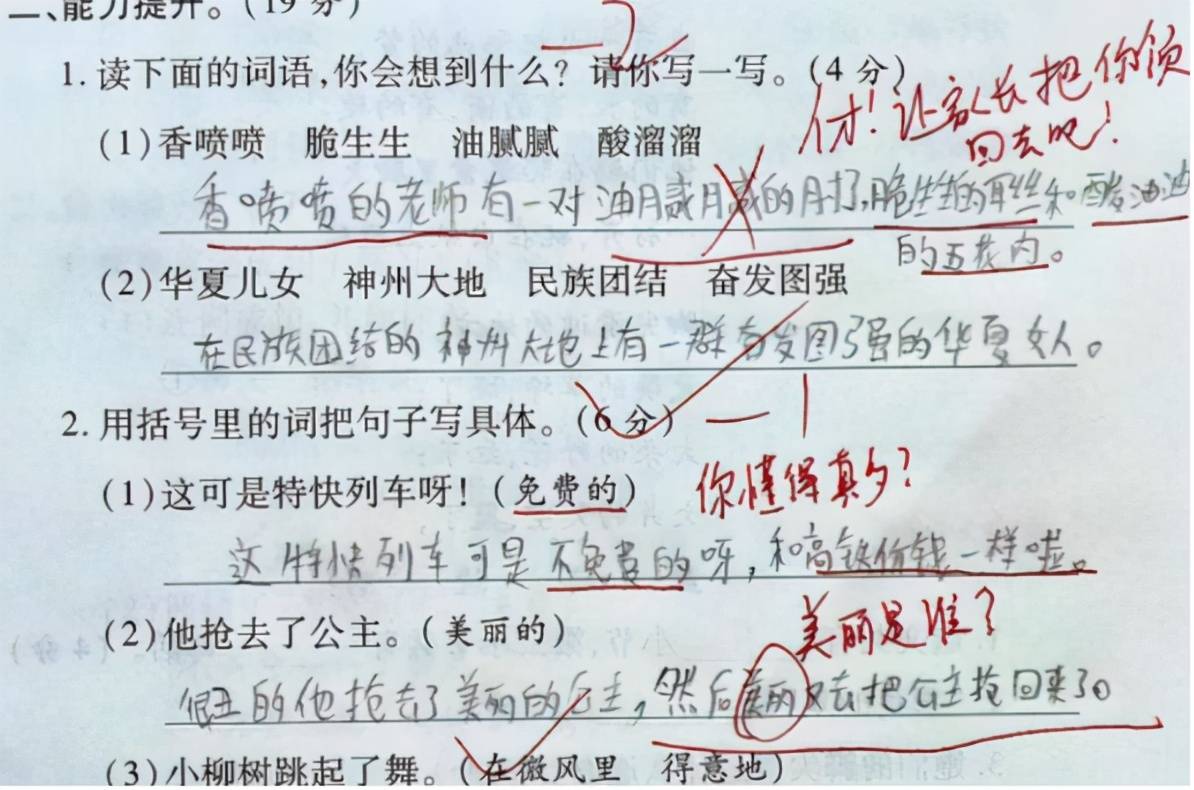 二、能力提升。(19 分)
1. 读下面的词语,你会想到什么？请你写一写。(4 分)
人才！让家长把你领
回去吧！
(1)香喷喷 脆生生 油腻腻 酸溜溜
香喷喷的老师有一对油
的
脆生生的耳丝和酸油油
的五花肉。
(2)华夏儿女 神州大地 民族团结 奋发图强
在民族团结的神州大地上有一群奋发图强的华夏女人。
2. 用括号里的词把句子写具体。(6 分)
(1)这可是特快列车呀！(免费的)
你懂得真多？
这特快列车可是不免费的呀，和高铁价钱一样啦。
(2)他抢去了公主。(美丽的)
美丽是谁？
很丑的他抢去了美丽的公主，然后美丽又去把公主抢回来了。
(3)小柳树跳起了舞。(在微风里 得意地)